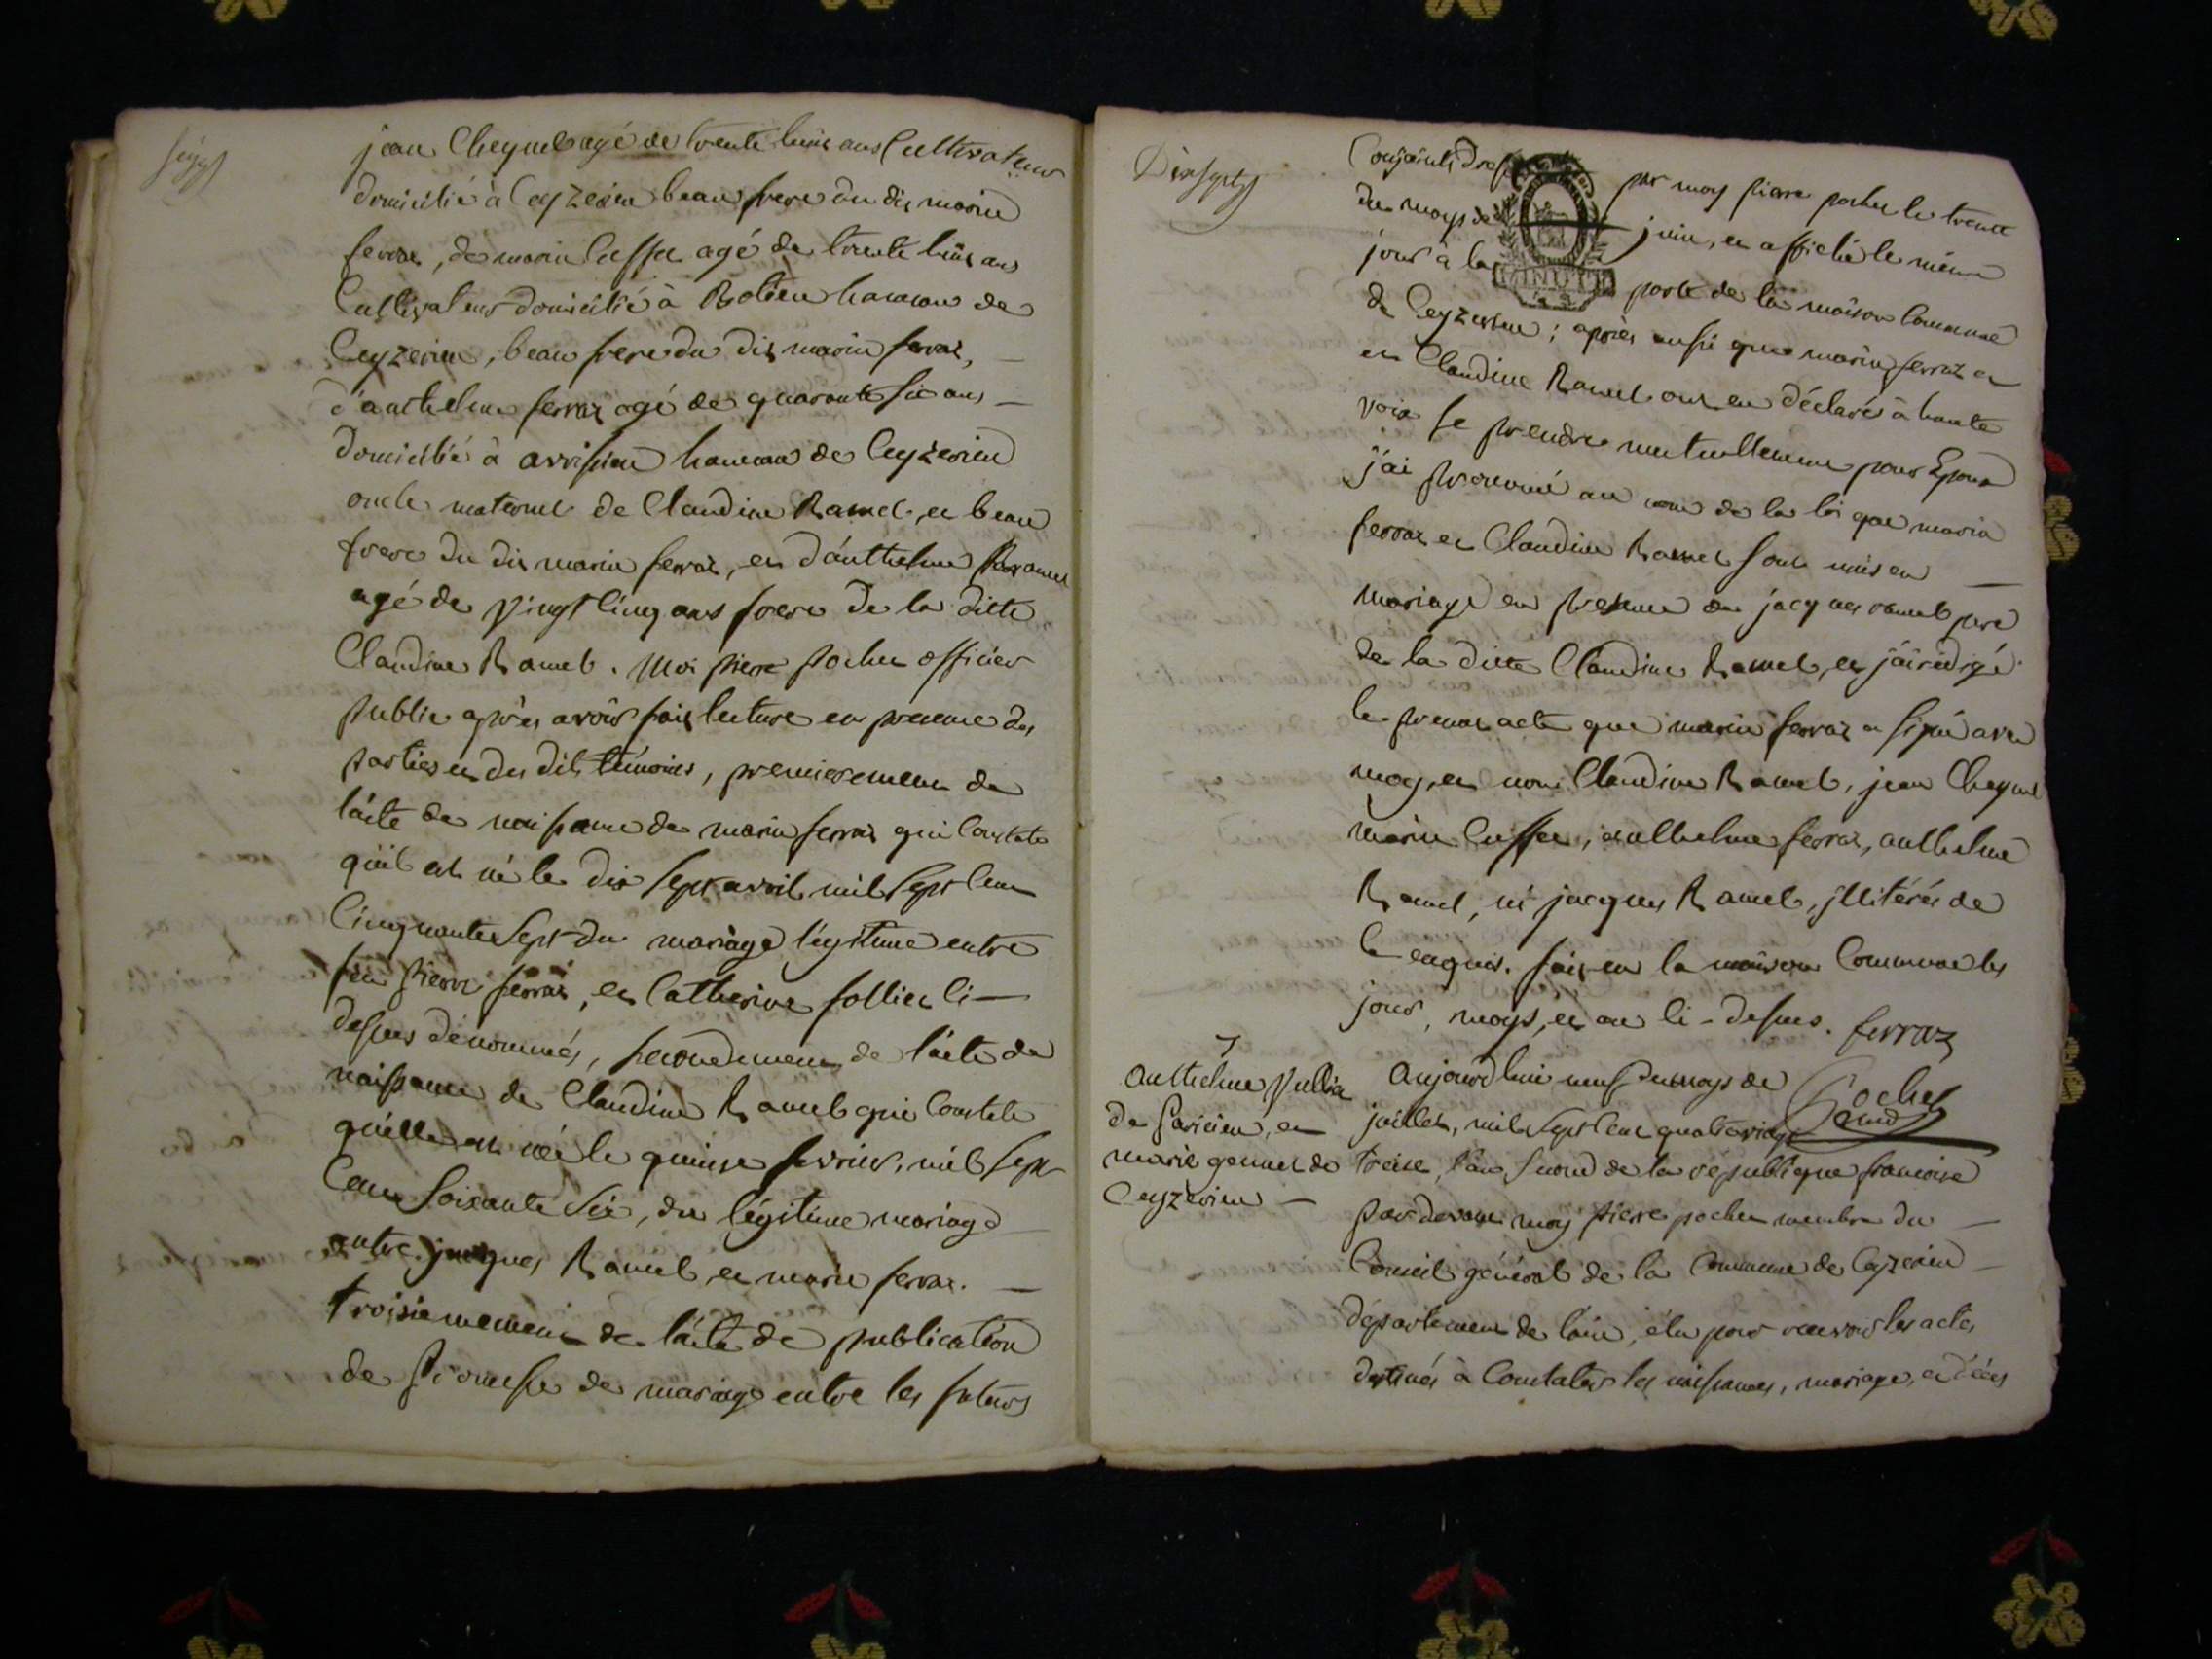 jean Cheynel agé de trente huit ans Cultivateur
domicilié à Ceyzerieu beau frere du dit marin
ferraz, de marin Cusset agé de trente huit ans
Cultivateur domicilié à hameau de
Ceyzerieu, beau frere du dit marin ferraz, —
d'anthelme ferraz agé de quarante six ans —
domicilié à avrissieu hameau de Ceyzerieu
oncle maternel de Claudine Ramel et beau
frere du dit marin ferraz, et d'anthelme Ramel
agé de vingt cinq ans frere de la ditte
Claudine Ramel. Moi pierre pochet officier
public après avoir fait lecture en presence des
parties et des dits témoins, premierement de
l'acte de naissance de marin ferraz qui constate
qu'il est né le dix sept avril mil sept cent
Cinquante sept du mariage légitime entre
feu pierre ferraz, et Catherine follliet ci —
dessus dénommés, secondement de l'acte de
naissance de Claudine Ramel qui constate
qu'elle est née le quinze fevrier, mil sept
Cent soixante six, du légitime mariage
entre jacques Ramel et marie ferraz. —
troisiemement de l'acte de publication
de promesse de mariage entre les futurs
Dixsept
Conjoints par moy pierre pochet le trente
du moys de juin, et affiché le même
jour à la porte de la maison Commune
de Ceyzerieu ; après aussi que marin ferraz
et Claudine Ramel ont eu déclarés à haute
voix se prendre mutuellement pour Epoux
j'ai prononcé au nom de la loi que marin
ferraz et Claudine Ramel sont unis en —
mariage en presence de jacques ramel pere
de la ditte Claudine Ramel, et j'ai rédigé
le present acte que marin ferraz a signé avec
moy, et non Claudine Ramel, jean Cheynel
marin Cusset, anthelme ferraz, anthelme
Ramel, ni jacques Ramel, illitérés de
ce enquis. fait en la maison Commune les
jour, moys, et an ci-dessus. ferraz
Pochet
7
Anthelme Vullin
de et
marie de
Ceyzerieu —
Aujourd'hui neuf du moys de
juillet, mil sept cent quatre vingt
treize, l'an second de la république francoise
pardevant moy pierre pochet membre du —
Conseil général de la Commune de Ceyzerieu —
département de l'ain, élu pour recevoir les actes
destinés à Constater les naissances, mariage, et décès
MINUTE